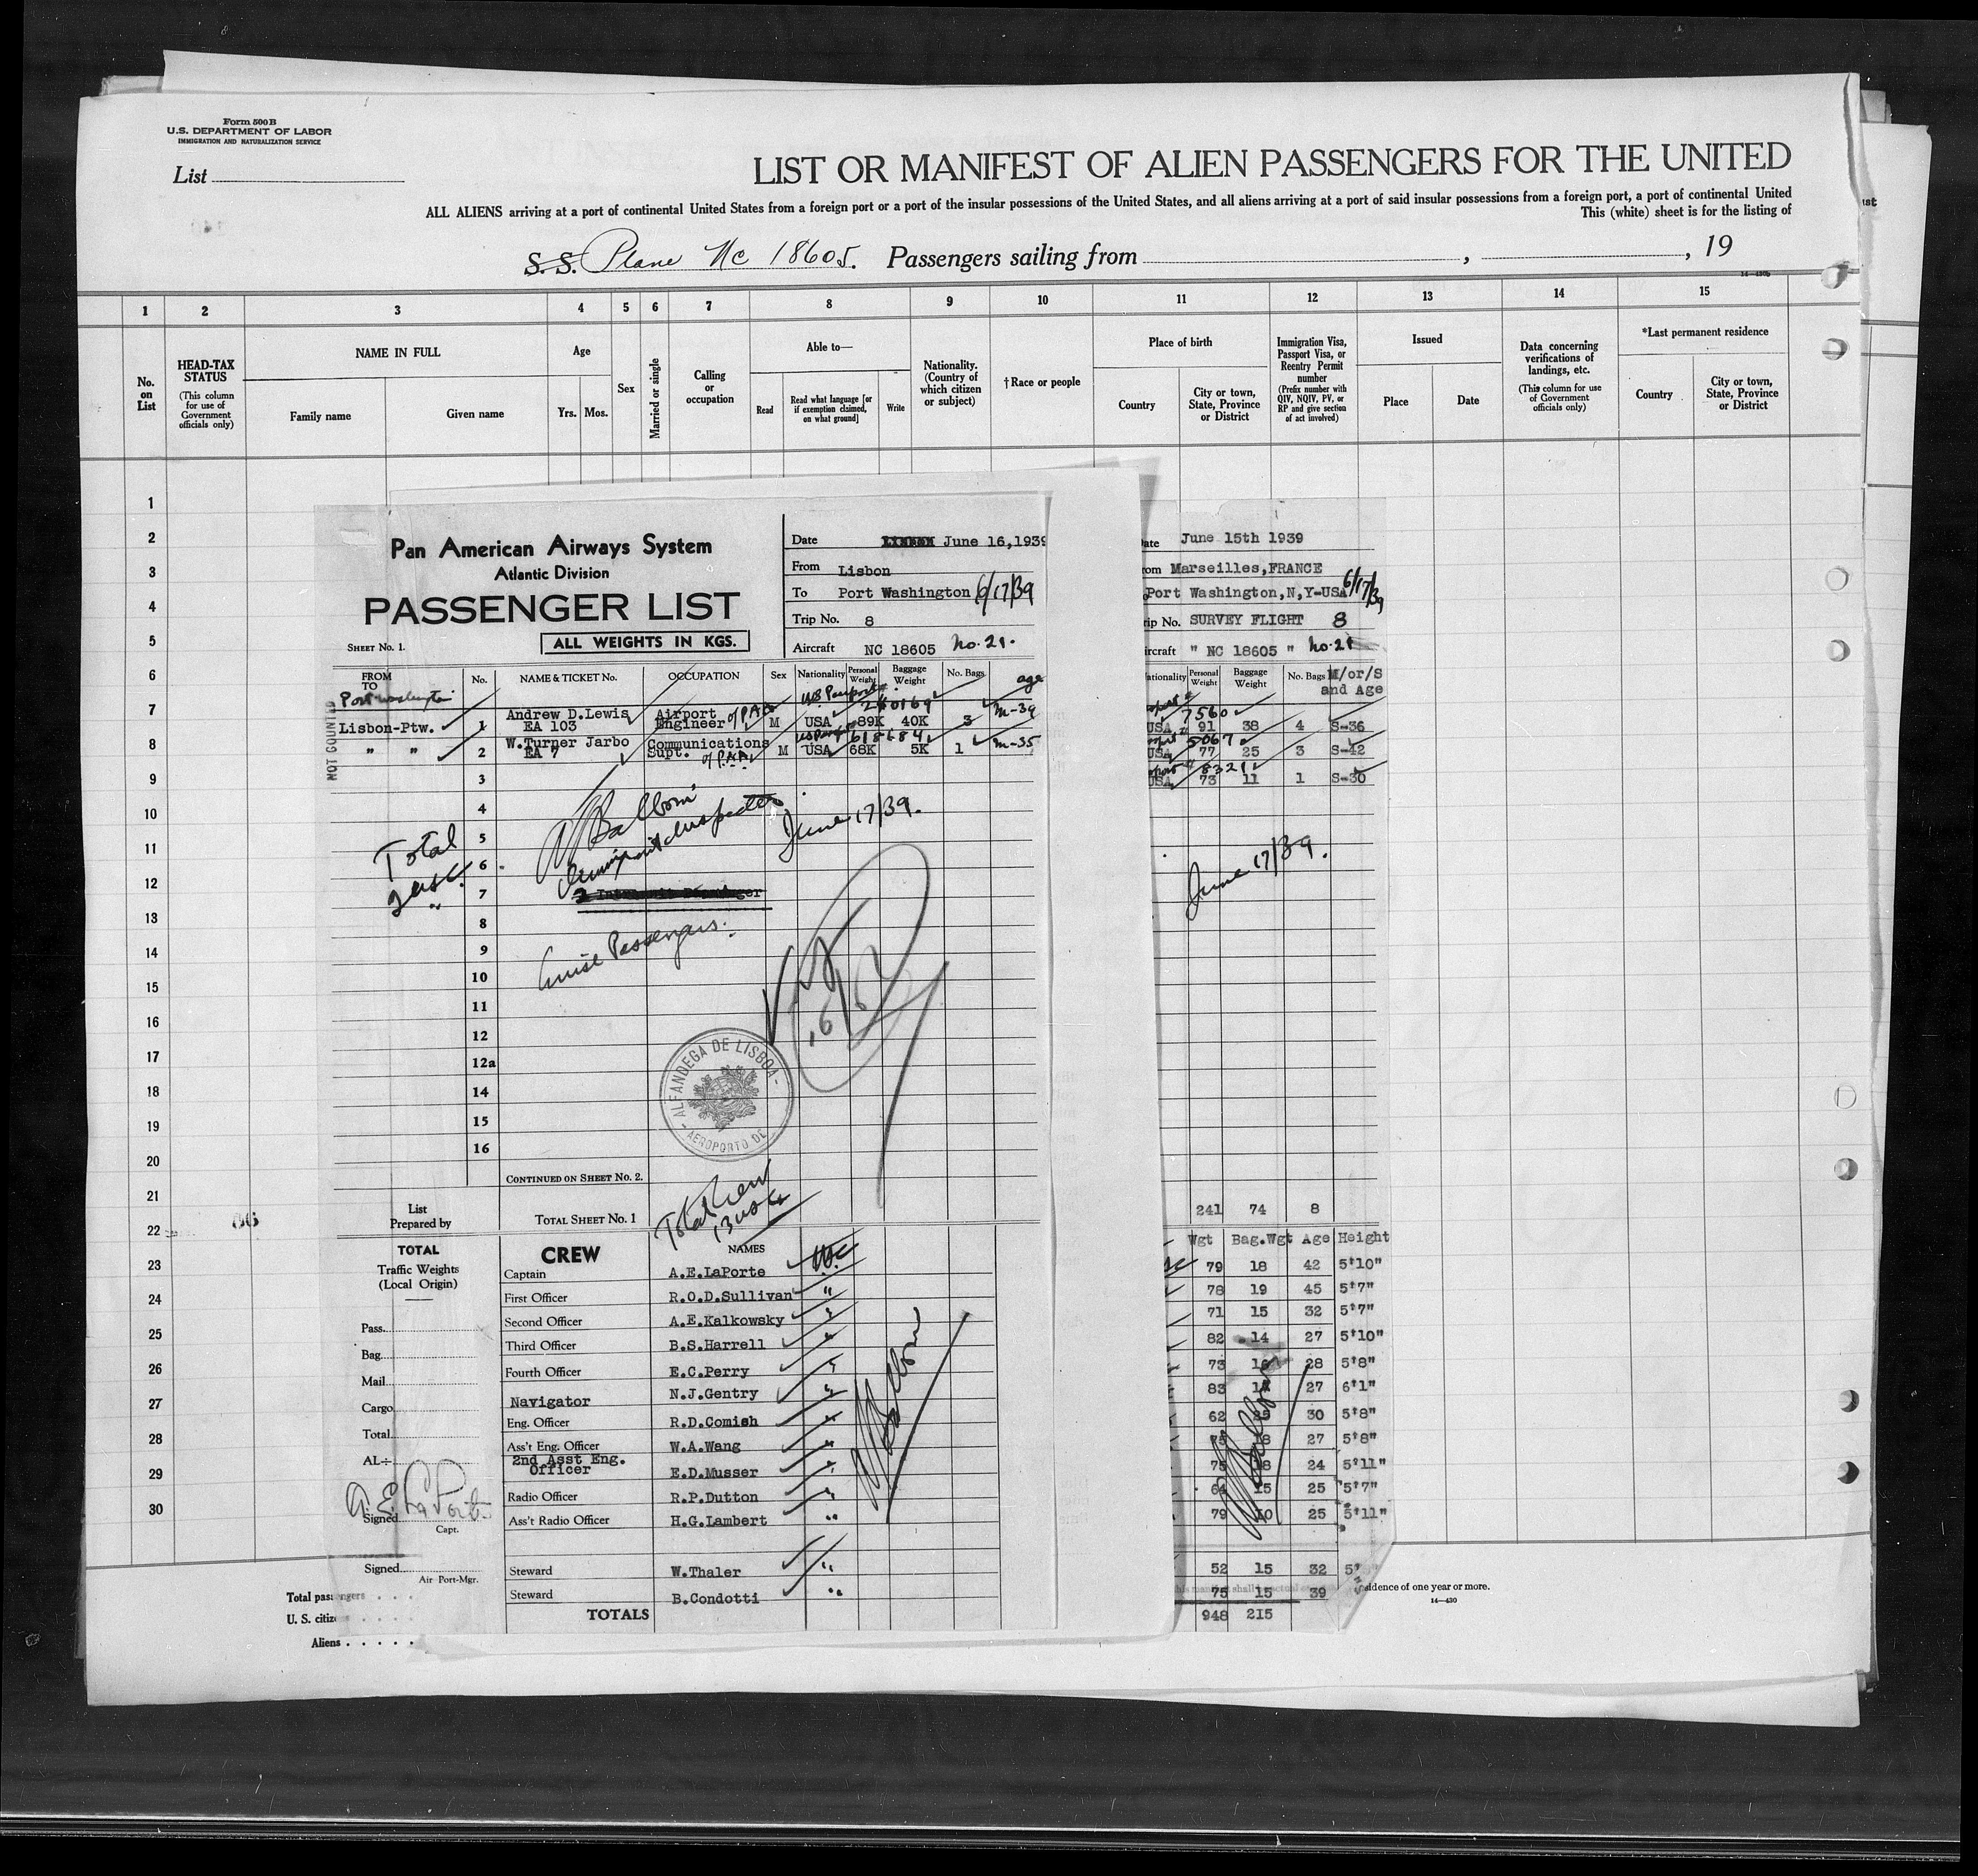 Form 500B
U.S. DEPARTMENT OF LABOR
IMMIGRATION AND NATURALIZATION SERVICE
List
LIST OR MANIFEST OF ALIEN PASSENGERS FOR THE UNITED
ALL ALIENS arriving at a port of continental United States from a foreign port or a port of the insular possessions of the United States, and all aliens arriving at a port of said insular possessions from a foreign port, a port of continental United
This (white) sheet is for the listing of
S.S. Plane Nc 18605. Passengers sailing from , , 19
1 2 3 4 5 6 7 8 9 10 11 12 13 14 15
No. on List
HEAD-TAX STATUS
(This column for use of Government officials only)
NAME IN FULL
Family name
Given name
Age
Yrs. Mos.
Sex
Married or single
Calling or occupation
Able to—
Read
Read what language [or if exemption claimed, on what ground]
Write
Nationality. (Country of which citizen or subject)
†Race or people
Place of birth
Country
City or town, State, Province or District
Immigration Visa, Passport Visa, or Reentry Permit number
(Prefix number with QIV, NQIV, PV, or RP and give section of act involved)
Issued
Place
Date
Data concerning verifications of landings, etc.
(This column for use of Government officials only)
*Last permanent residence
Country
City or town, State, Province or District
1
2
3
4
5
6
7
8
9
10
11
12
13
14
15
16
17
18
19
20
21
22
23
24
25
26
27
28
29
30
Pan American Airways System
Atlantic Division
PASSENGER LIST
SHEET No. 1.
ALL WEIGHTS IN KGS.
Date June 16,1939
From Lisbon
To Port Washington 6/17/39
Trip No. 8
Aircraft NC 18605 No. 21.
FROM TO No. NAME & TICKET No. OCCUPATION Sex Nationality Personal Weight Baggage Weight No. Bags age
Port Washington
NOT COUNTED
Lisbon-Ptw. 1 Andrew D.Lewis EA 103 Airport Engineer of PAA M USA 89K 40K 3 M-39
" " 2 W.Turner Jarbo EA 7 Communications Supt. of P.A.A. M USA 68K 5K 1 M-35
3
4
5
6
7
8
9
10
11
12
12a
14
15
16
Total
June 17/39.
Passengers.
ALFANDEGA DE LISBOA
AEROPORTO DE
CONTINUED ON SHEET No. 2.
List Prepared by
TOTAL SHEET No. 1
Total Crew
TOTAL
Traffic Weights
(Local Origin)
Pass.
Bag.
Mail
Cargo
Total
AL÷
A.E. LaPorte
Signed Capt.
Signed Air Port-Mgr.
CREW NAMES
Captain A.E.LaPorte
First Officer R.O.D.Sullivan "
Second Officer A.E.Kalkowsky "
Third Officer B.S.Harrell "
Fourth Officer E.C.Perry "
Navigator N.J.Gentry "
Eng. Officer R.D.Comish "
Ass't Eng. Officer W.A.Wang "
2nd Asst Eng. Officer E.D.Musser "
Radio Officer R.P.Dutton "
Ass't Radio Officer H.G.Lambert "
Steward W.Thaler "
Steward B.Condotti "
TOTALS
June 15th 1939
Marseilles,FRANCE
Port Washington,N,Y-USA 6/17/39
SURVEY FLIGHT 8
" NC 18605 " No. 21
Personal Weight Baggage Weight No. Bags M/or/S and Age
7560
USA 91 38 4 S-36
5067
USA 77 25 3 S-42
8321
USA 73 11 1 S-30
June 17/39.
241 74 8
Wgt Bag.Wgt Age Height
79 18 42 5'10"
78 19 45 5'7"
71 15 32 5'7"
82 14 27 5'10"
73 28 5'8"
83 27 6'1"
62 25 30 5'8"
75 18 27 5'8"
75 18 24 5'11"
64 15 25 5'7"
79 10 25 5'11"
52 15 32
75 15 39
948 215
Total passengers
U. S. citizens
Aliens
residence of one year or more.
14—430